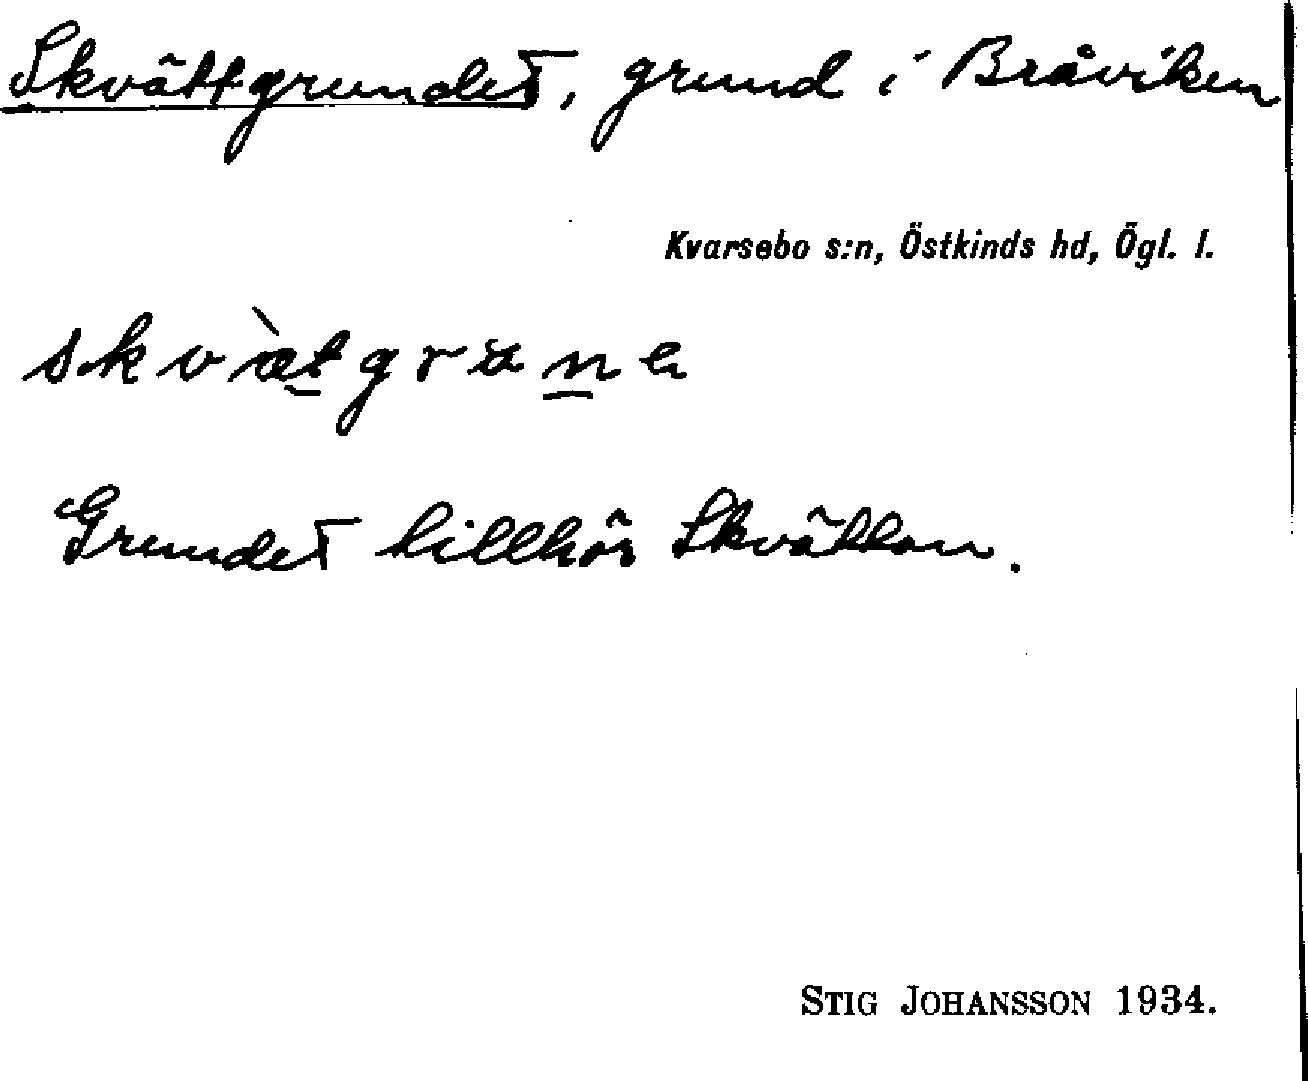 Skvättgrundet, grund i Bråviken
Kvarsebo s:n, Östkinds hd, Ögl. l.
Grundet tillhör Skvättan.
STIG JOHANSSON 1934.